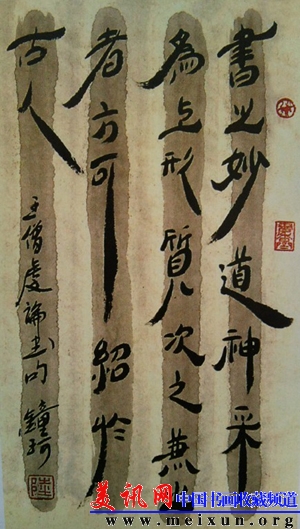 書之妙道神采
為上形質次之兼之
者方可紹於
古人
王僧虔論書句 鐘
陸
美讯网 中国书画收藏频道
www.meixun.org